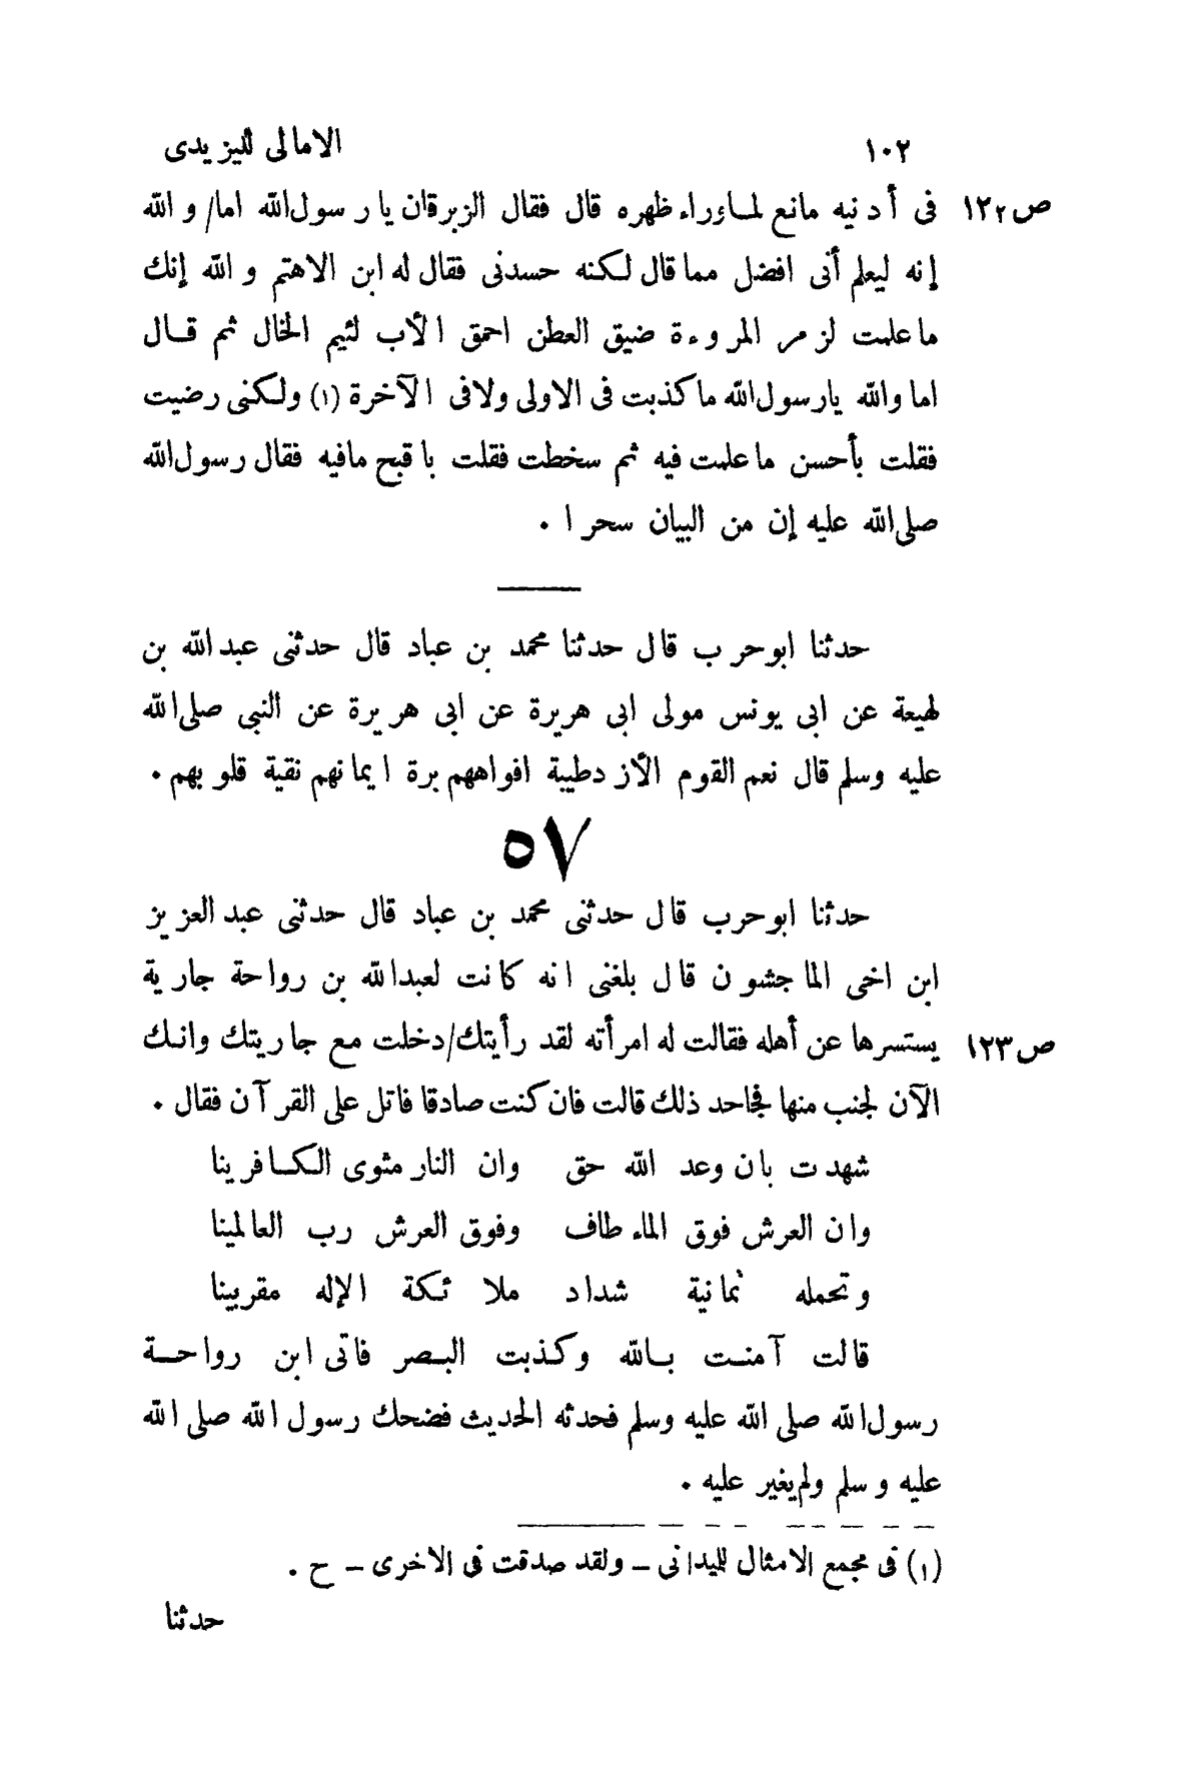 ١٠٢ الامالى لليزيدى
ص١٢٢ فى أدنيه مانع لماوراء ظهره قال فقال الزبرقان يا رسول الله اما/ و الله
إنه ليعلم أنى افضل مما قال لكنه حسدنى فقال له ابن الاهتم و الله إنك
ما علمت لزمر المروءة ضيق العطن احمق الأب لئيم الخال ثم قال
اما والله يارسول الله ما كذبت فى الاولى ولا فى الآخرة (١) ولكنى رضيت
فقلت بأحسن ما علمت فيه ثم سخطت فقلت باقبح مافيه فقال رسول الله
صلى الله عليه إن من البيان سحرا ٠
حدثنا ابو حرب قال حدثنا محمد بن عباد قال حدثنى عبد الله بن
لهيعة عن ابى يونس مولى ابى هريرة عن ابى هريرة عن النبى صلى الله
عليه وسلم قال نعم القوم الأزد طيبة افواههم برة ايمانهم نقية قلوبهم ٠
٥٧
حدثنا ابو حرب قال حدثنى محمد بن عباد قال حدثنى عبد العزيز
ابن اخى الماجشون قال بلغنى انه كانت لعبد الله بن رواحة جارية
ص١٢٣ يستسرها عن أهله فقالت له امرأته لقد رأيتك/دخلت مع جاريتك وانك
الآن لجنب منها فجاحد ذلك قالت فان كنت صادقا فاتل على القرآن فقال ٠
شهدت بان وعد الله حق وان النار مثوى الكافرينا
وان العرش فوق الماء طاف وفوق العرش رب العالمينا
وتحمله ثمانية شداد ملائكة الإله مقربينا
قالت آمنت بالله وكذبت البصر فاتى ابن رواحة
رسول الله صلى الله عليه وسلم فحدثه الحديث فضحك رسول الله صلى الله
عليه و سلم ولم يغير عليه ٠
(١) فى مجمع الامثال للميدانى – ولقد صدقت فى الاخرى – ح ٠
حدثنا